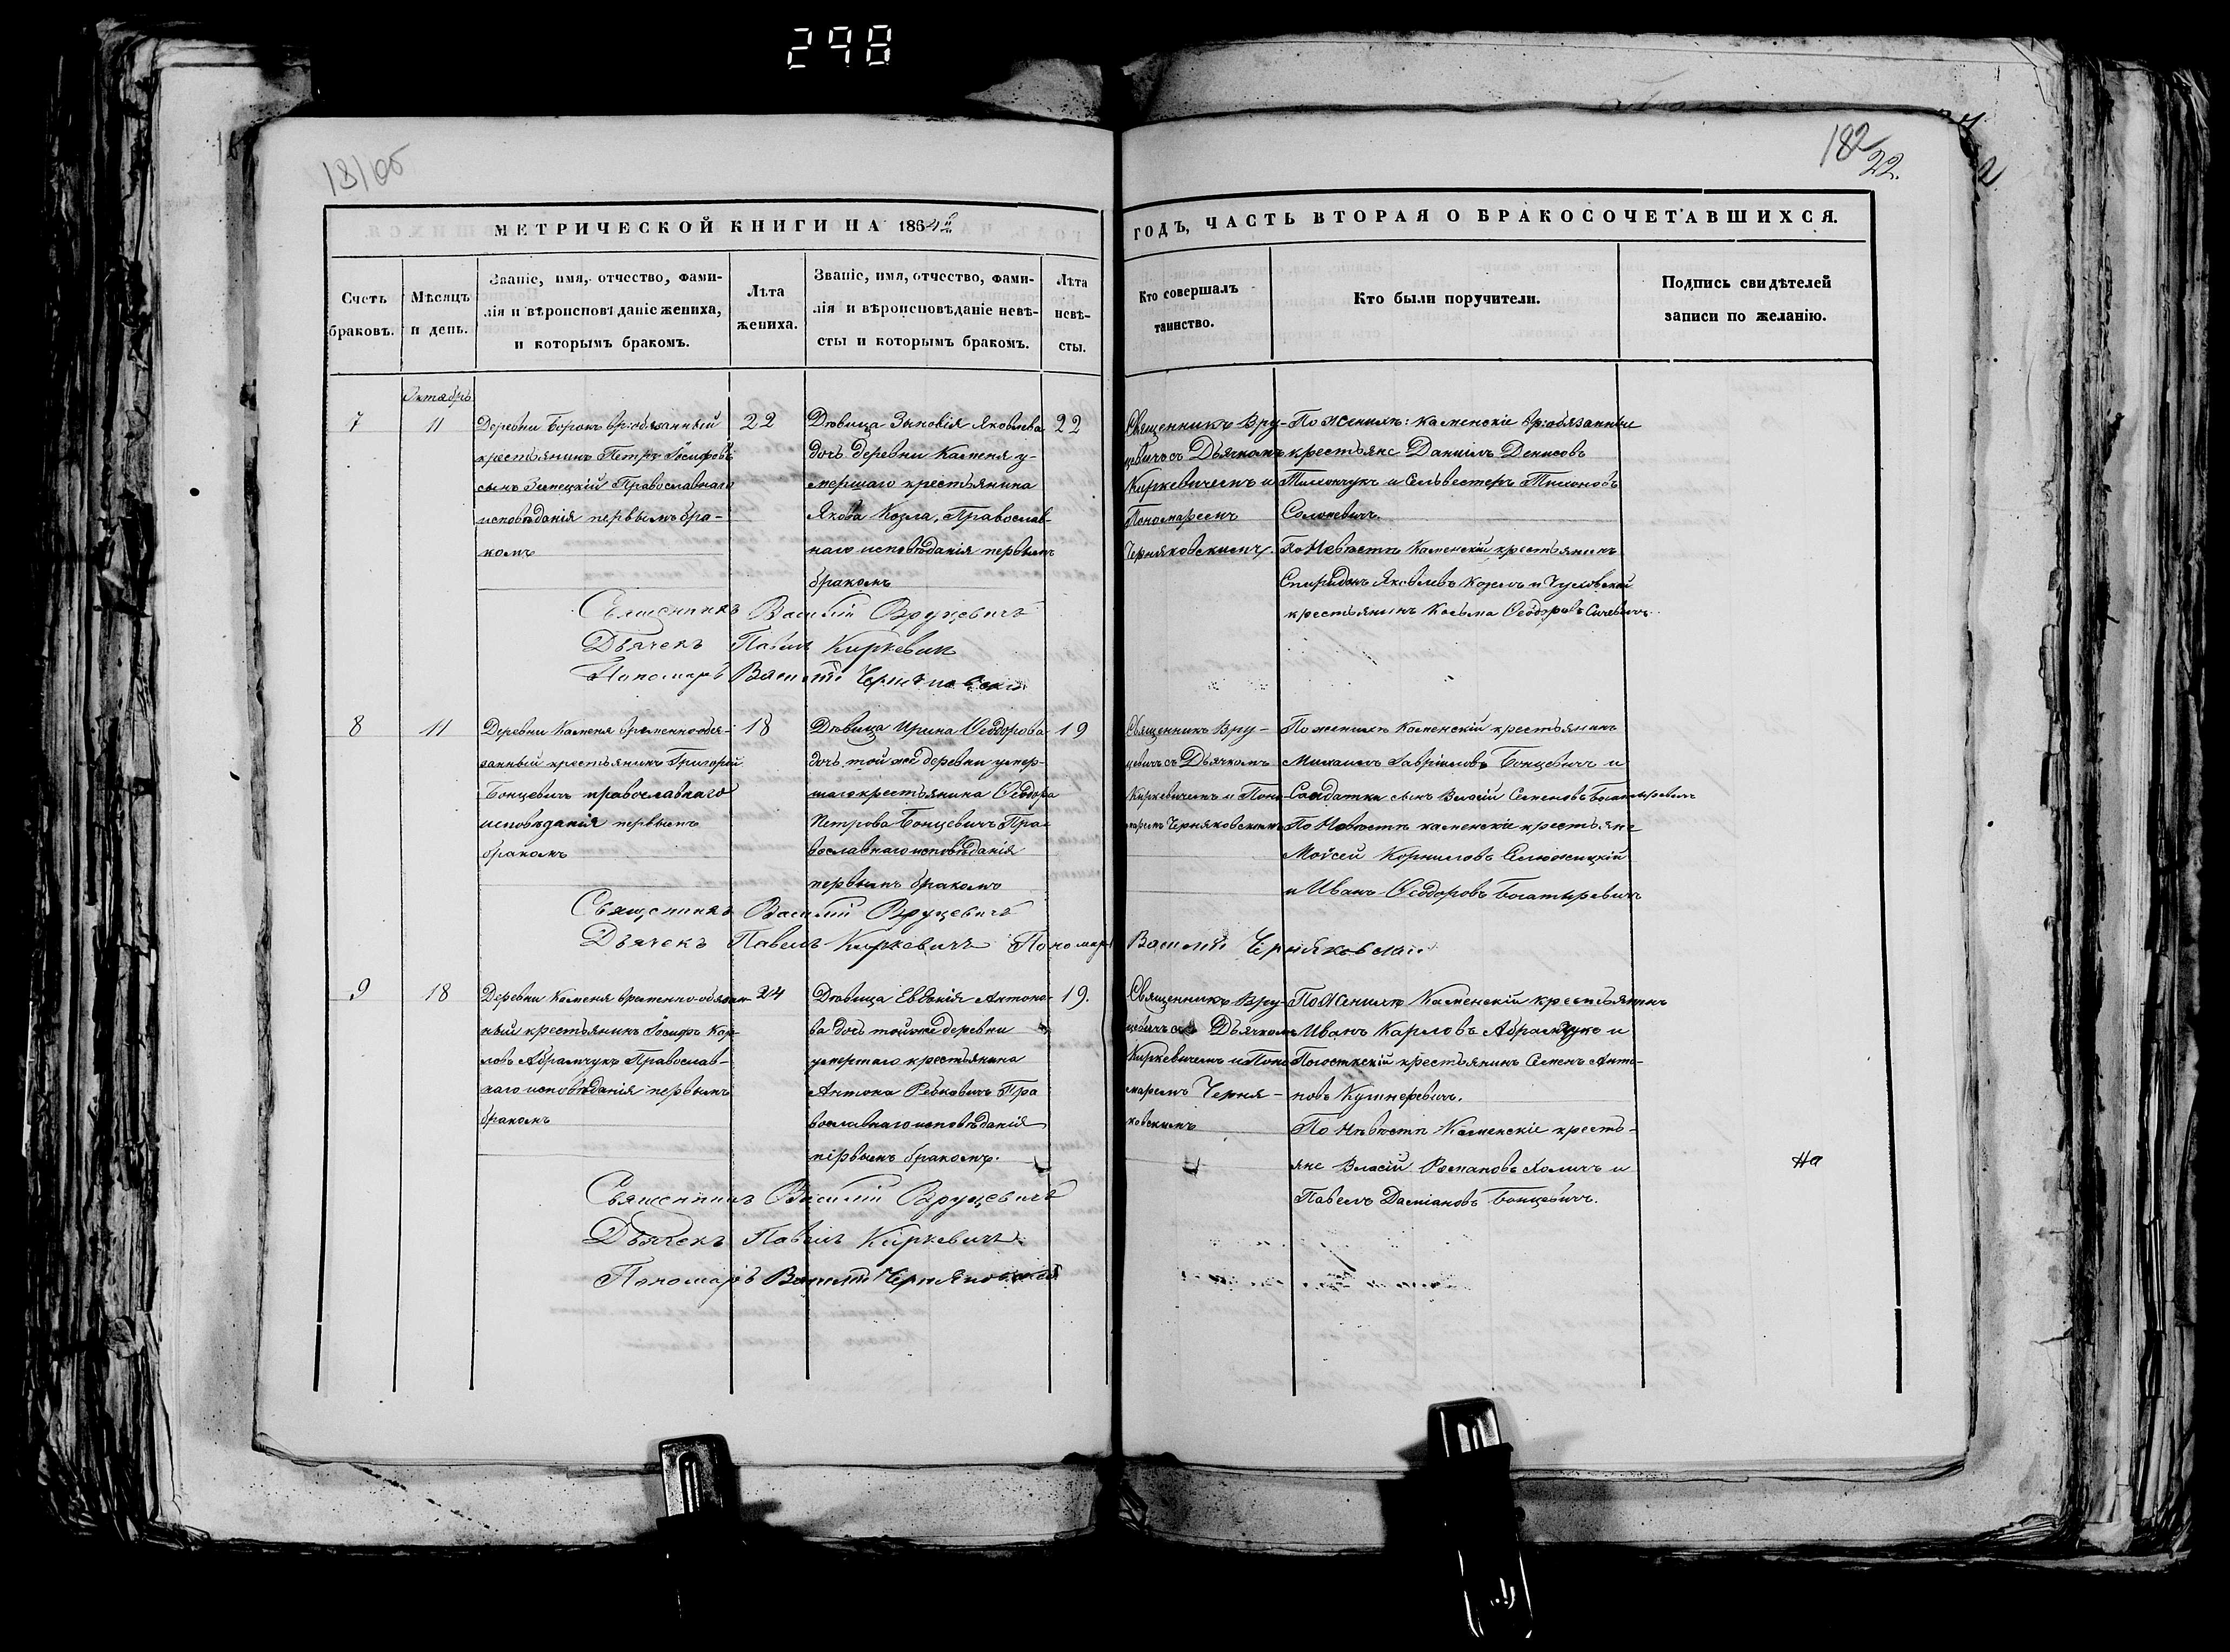 298
182
22.
МЕТРИЧЕСКОЙ КНИГИ НА 1864й
ГОДЪ, ЧАСТЬ ВТОРАЯ О БРАКОСОЧЕТАВШИХСЯ.
Счетъ браковъ.
Мѣсяцъ и день.
Званіе, имя, отчество, фами-
лія и вѣроисповѣданіе жениха,
и которымъ бракомъ.
Лѣта
жениха.
Званіе, имя, отчество, фами-
лія и вѣроисповѣданіе невѣ-
сты и которымъ бракомъ.
Лѣта
невѣ-
сты.
Кто совершалъ
таинство.
Кто были поручители.
Подпись свидѣтелей
записи по желанію.
Октябрь
7
11
Деревни Борокъ вр:обязанный
крестьянинъ Петръ Іосифовъ
сынъ Зенецкій Православнаго
исповѣданія первымъ бра-
комъ
22
Дѣвица Зиновія Яковлева
дочь деревни Каменя у-
мершаго крестьянина
Якова Козла, Православ-
наго исповѣданія первымъ
бракомъ
22
Священникъ Вру-
цевичъ съ Дьячкомъ
Киркевичемъ и
Пономаремъ
Черняковскимъ
По Женихѣ: Каменскіе вр:обязанные
крестьяне Даніилъ Денисовъ
Тихончукъ и Сельвестеръ Тихоновъ
Солоневичъ.
По Невѣстѣ Каменскій крестьянинъ
Спиридонъ Яковлевъ Козелъ и
крестьянинъ Косьма Ѳеодоровъ
Священникъ Василій Вруцевичъ
Дьячекъ Павелъ Киркевичъ
Пономарь Василій Черняковскій
8
11
Деревни Каменя временнообя-
занный крестьянинъ Григорій
Бонцевичъ православнаго
исповѣданія первымъ
бракомъ
18
Дѣвица Ирина Ѳеодорова
дочь той же деревни умер-
шаго крестьянина Ѳеодора
Петрова Бонцевичъ Пра-
вославнаго исповѣданія
первымъ бракомъ
19
Священникъ Вру-
цевичъ съ Дьячкомъ
Киркевичемъ и Поно-
маремъ Черняковскимъ
По женихѣ Каменскій крестьянинъ
Михаилъ Гавріиловъ Бонцевичъ и
Солдатки сынъ Власій Семеновъ Богатыревичъ
По Невѣстѣ каменскіе крестьяне
Мойсей Корниловъ
и Иванъ Ѳеодоровъ Богатыревичъ
Священникъ Василій Вруцевичъ
Дьячекъ Павелъ Киркевичъ Пономарь Василій Черняковскій
9
18
Деревни Каменя временно-обязан-
ный крестьянинъ Іосифъ Кар-
ловъ Абрамчукъ Православ-
наго исповѣданія первымъ
бракомъ
24
Дѣвица Евдокія Антоно-
ва дочь той же деревни
умершаго крестьянина
Антона Ребковичъ Пра
вославнаго исповѣданія
первымъ бракомъ.
19.
Священникъ Вру-
цевичъ съ Дьячкомъ
Киркевичемъ и Поно
маремъ Черня-
ковскимъ
По Женихѣ Каменскій крестьянинъ
Иванъ Карловъ Абрамчукъ и
Погосткскій крестьянинъ Семенъ Анто-
новъ Кушнеревичъ.
По Невѣстѣ Каменскіе кресть-
яне Власій Романовъ Холичъ и
Павелъ Даміановъ Бонцевичъ.
На
Священникъ Василій Вруцевичъ
Дьячекъ Павелъ Киркевичъ
Пономарь Василій Черняковскій